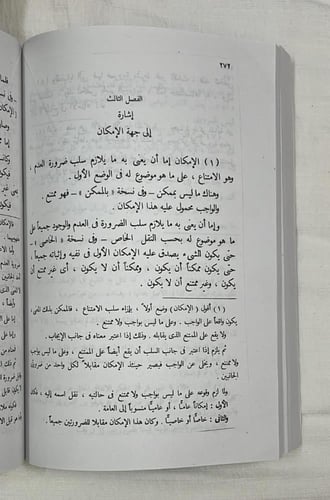 ٢٧٢
الفصل الثالث
إشارة
إلى جهة الإمكان
(١) الإمكان إما أن يعنى به ما يلازم سلب ضرورة العدم ،
وهو الامتناع ، على ما هو موضوع له فى الوضع الأول .
وهناك ما ليس بممكن – وفى نسخة « بالممكن » – فهو ممتنع .
والواجب محمول عليه هذا الإمكان .
وإما أن يعنى به ما يلازم سلب الضرورة فى العدم والوجود جميعاً على
ما هو موضوع له بحسب النقل الخاص – وفى نسخة « الخاصى » –
حتى يكون الشىء يصدق عليه الإمكان الأول فى نفيه وإثباته جميعاً ،
حتى يكون ممكناً أن يكون ، وممكناً أن لا يكون ، أى غير ممتنع أن
يكون ، وغير ممتنع أن لا يكون .
(١) أقول : الإمكان وضع أولا ، بإزاء سلب الامتناع ، فالممكن بذلك المعنى
يكون واقعاً على الواجب ، وعلى ما ليس بواجب ولا ممتنع .
ولا يقع على الممتنع الذى يقابله . وذلك إذا اعتبر معناه فى جانب الإيجاب .
ثم يلزم إذا اعتبر فى جانب السلب أن يقع أيضاً على الممتنع ، وعلى ما ليس بواجب
ولا ممتنع ، ويخلى عن الواجب فيصير حينئذ الإمكان مقابلا لكل واحد من ضرورتى
الجانبين .
ولما لزم وقوعه على ما ليس بواجب ولا ممتنع فى حالتيه ، نقل اسمه إليه ، فكان
الأول : إمكاناً عاماً ، أو عامياً منسوباً إلى العامة .
والثانى : خاصاً أو خاصياً . وكان هذا الإمكان مقابلا للضرورتين جميعاً .